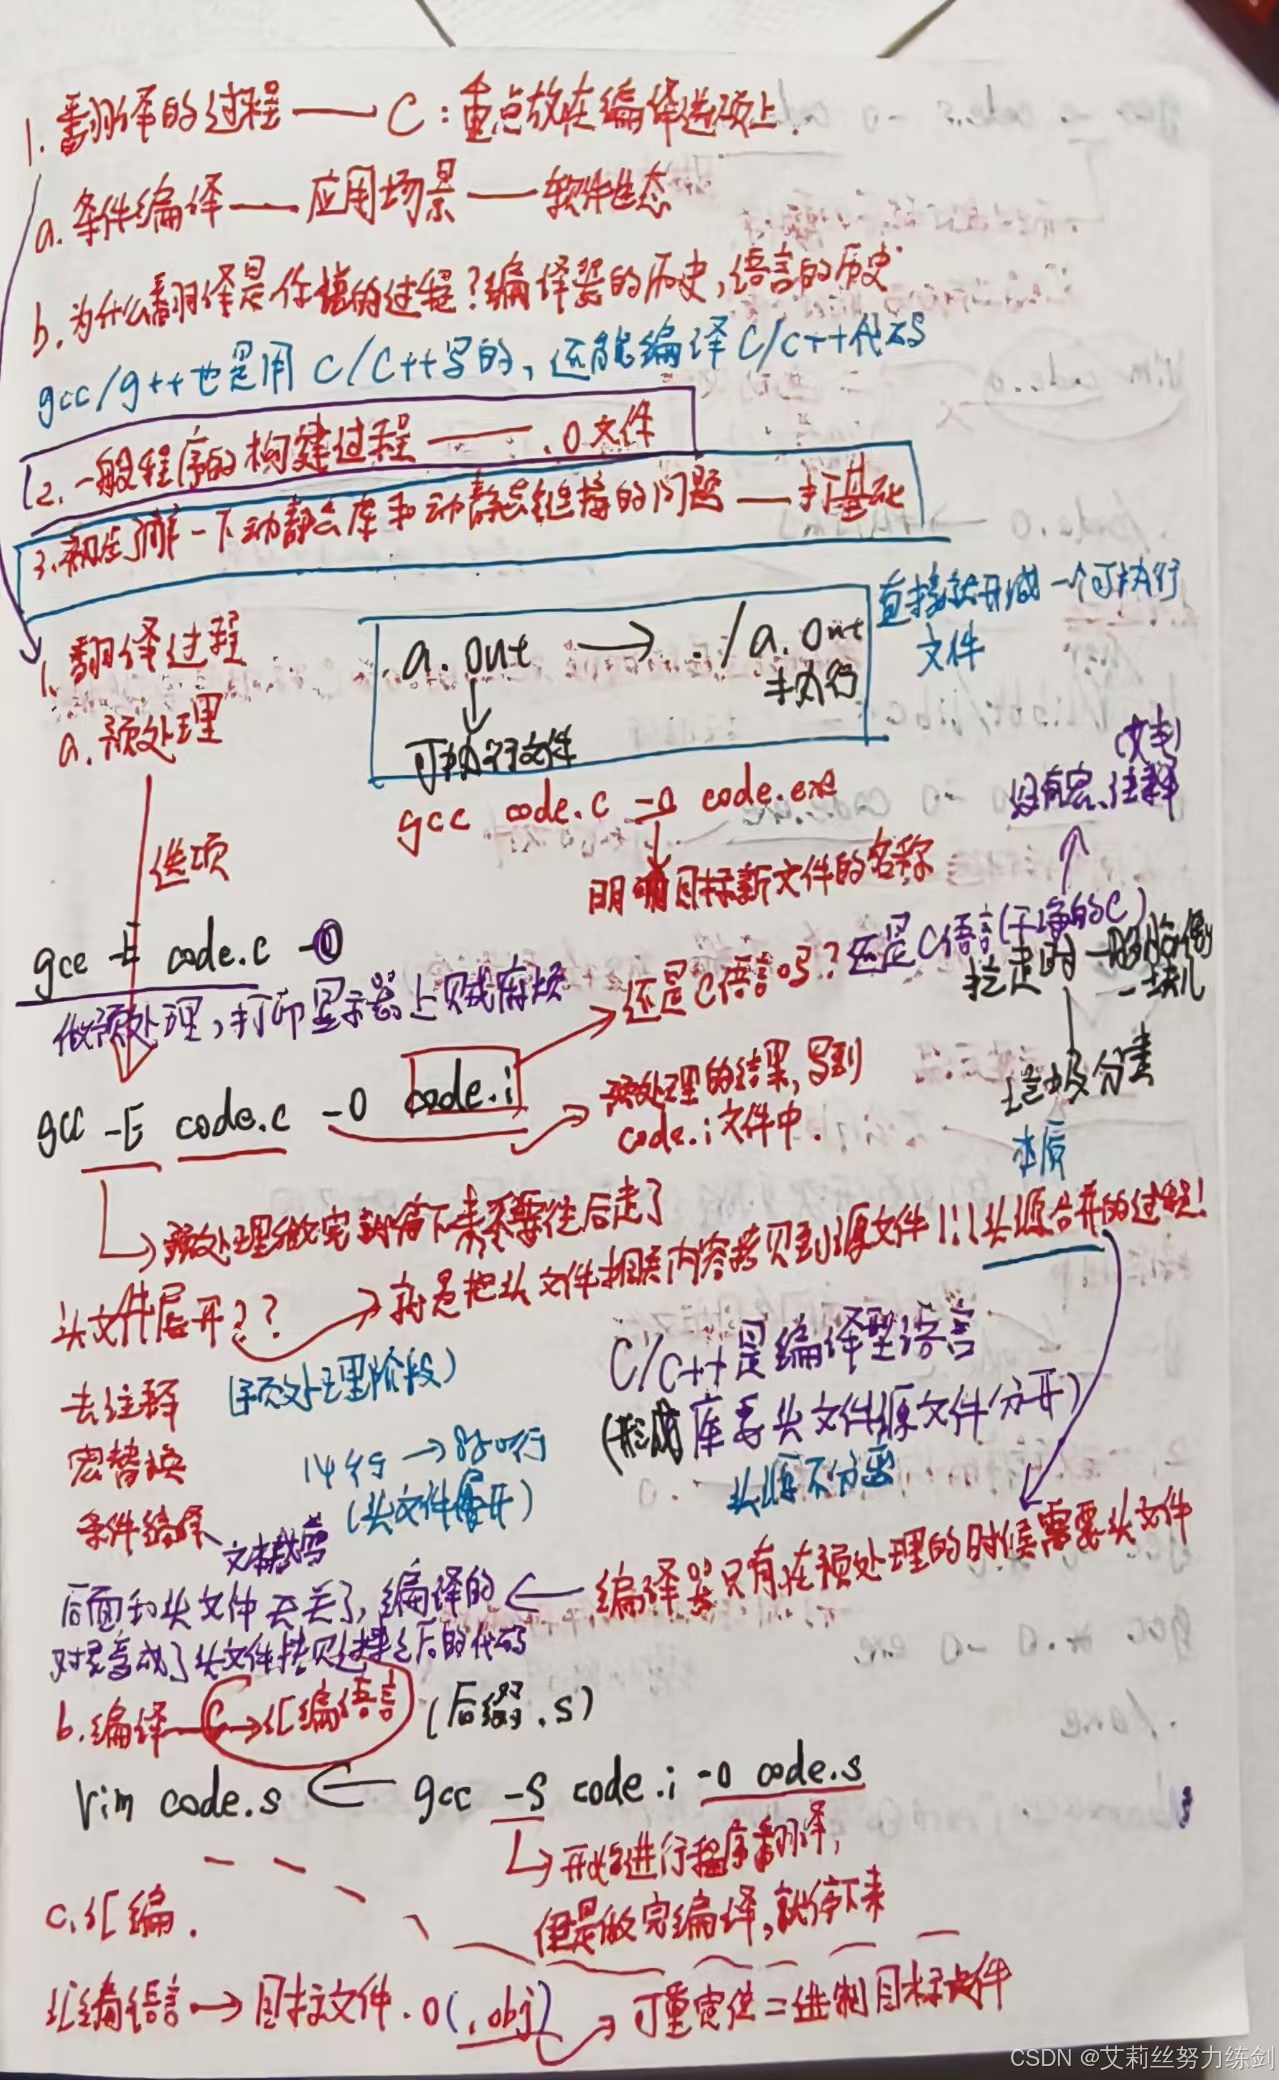 1. 翻译的过程 —— C：重点放在编译选项上.
a. 条件编译 —— 应用场景 —— 软件生态
b. 为什么翻译是你说的过程？编译器的历史，语言的历史
gcc/g++也是用 C/C++写的，还能编译 C/C++代码
2. 一般程序的构建过程 —— .o文件
3. 初步了解一下动静态库和动静态链接的问题 —— 打基础
直接就形成一个可执行
文件
1. 翻译过程
a. out → ./a. out
执行
可执行文件
a. 预处理
gcc code.c -o code.exe
明确目标新文件的名称
选项
没有宏、注释
gcc -E code.c -o
还是C语言吗？还是C语言(干净的C)
做预处理，打印显示器上贼麻烦
垃圾分类
本质
gcc -E code.c -o code.i
预处理的结果，写到
code.i文件中.
预处理做完就停下来不要往后走了
头文件展开？？ 就是把头文件相关内容拷贝到源文件！！！头源合并的过程！
去注释 (预处理阶段)
宏替换
条件编译
文本裁剪
14行 → 800行
(头文件展开)
C/C++是编译型语言
(形成库要头文件源文件分开)
头源不分离
编译器只有在预处理的时候需要头文件
后面和头文件无关了，编译的
对象变成了头文件拷贝过来之后的代码
b. 编译 C→汇编语言 (后缀.s)
vim code.s ← gcc -S code.i -o code.s
开始进行程序翻译，
但是做完编译，就停下来
c. 汇编.
汇编语言 → 目标文件.o(.obj) → 可重定位二进制目标文件
CSDN @艾莉丝努力练剑